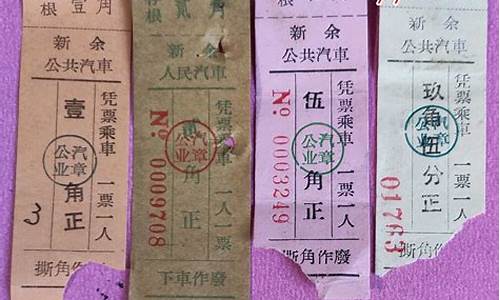 根 壹 角
新余
公共汽車
壹角正
凭票乘車 一票一人
公汽
业章
3
撕角作廢
存根 贰 角
新余
人民汽車
贰角正
凭票乘車 一人一票
公汽
业章
No 0009708
下車作廢
根 伍 角
新余
公共汽車
伍角正
凭票乘車 一票一人
公汽
业章
No 0003249
撕角作廢
根
新余
公共汽車
玖角伍分正
凭票乘車 一票一人
公汽
业章
01763
撕角作廢